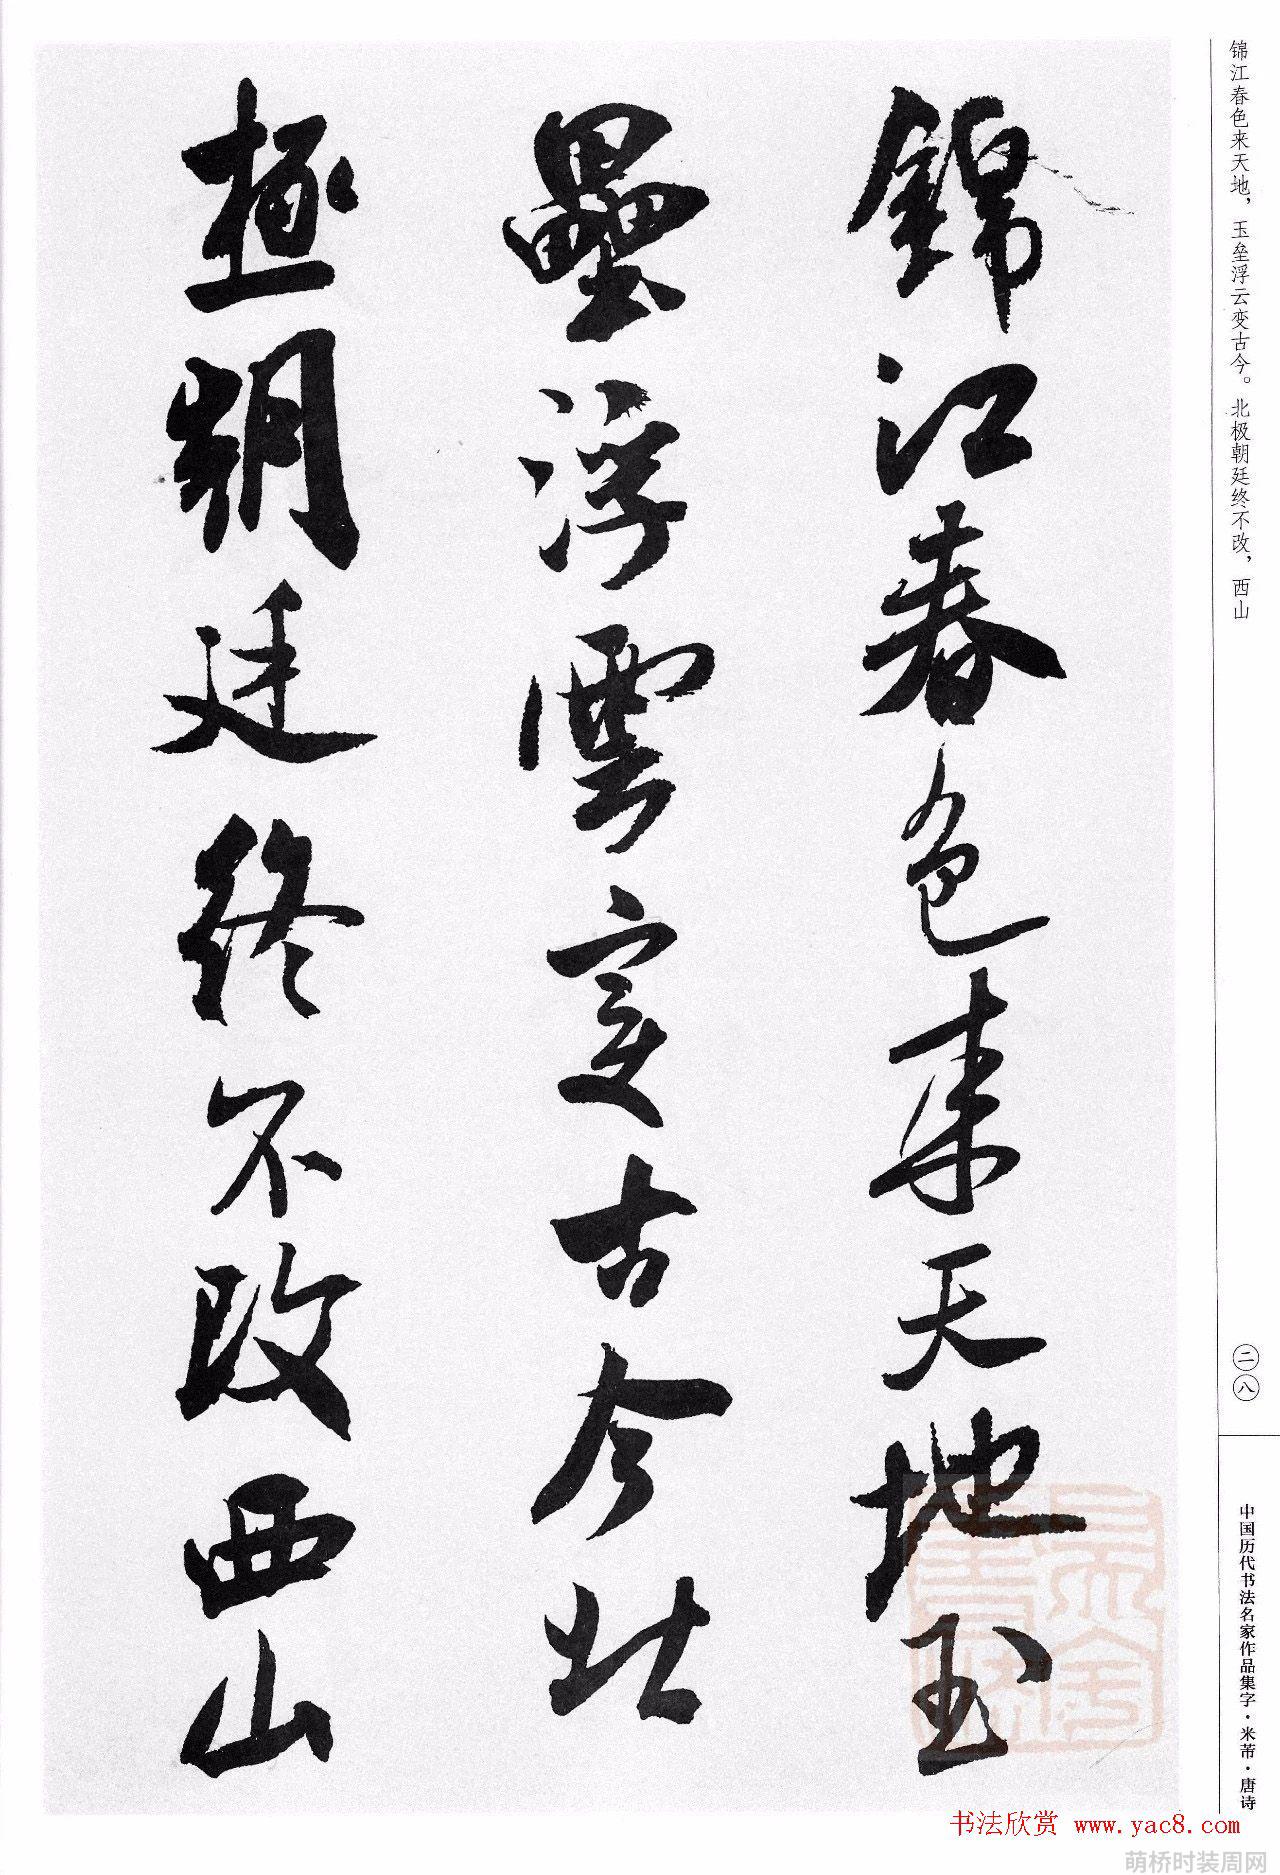 锦江春色来天地，玉垒浮云变古今。北极朝廷终不改，西山
錦江春色来天地玉
壘浮雲变古今北
極朝廷终不改西山
二八
中国历代书法名家作品集字·米芾·唐诗
书法欣赏 www.yac8.com
萌桥时装周网